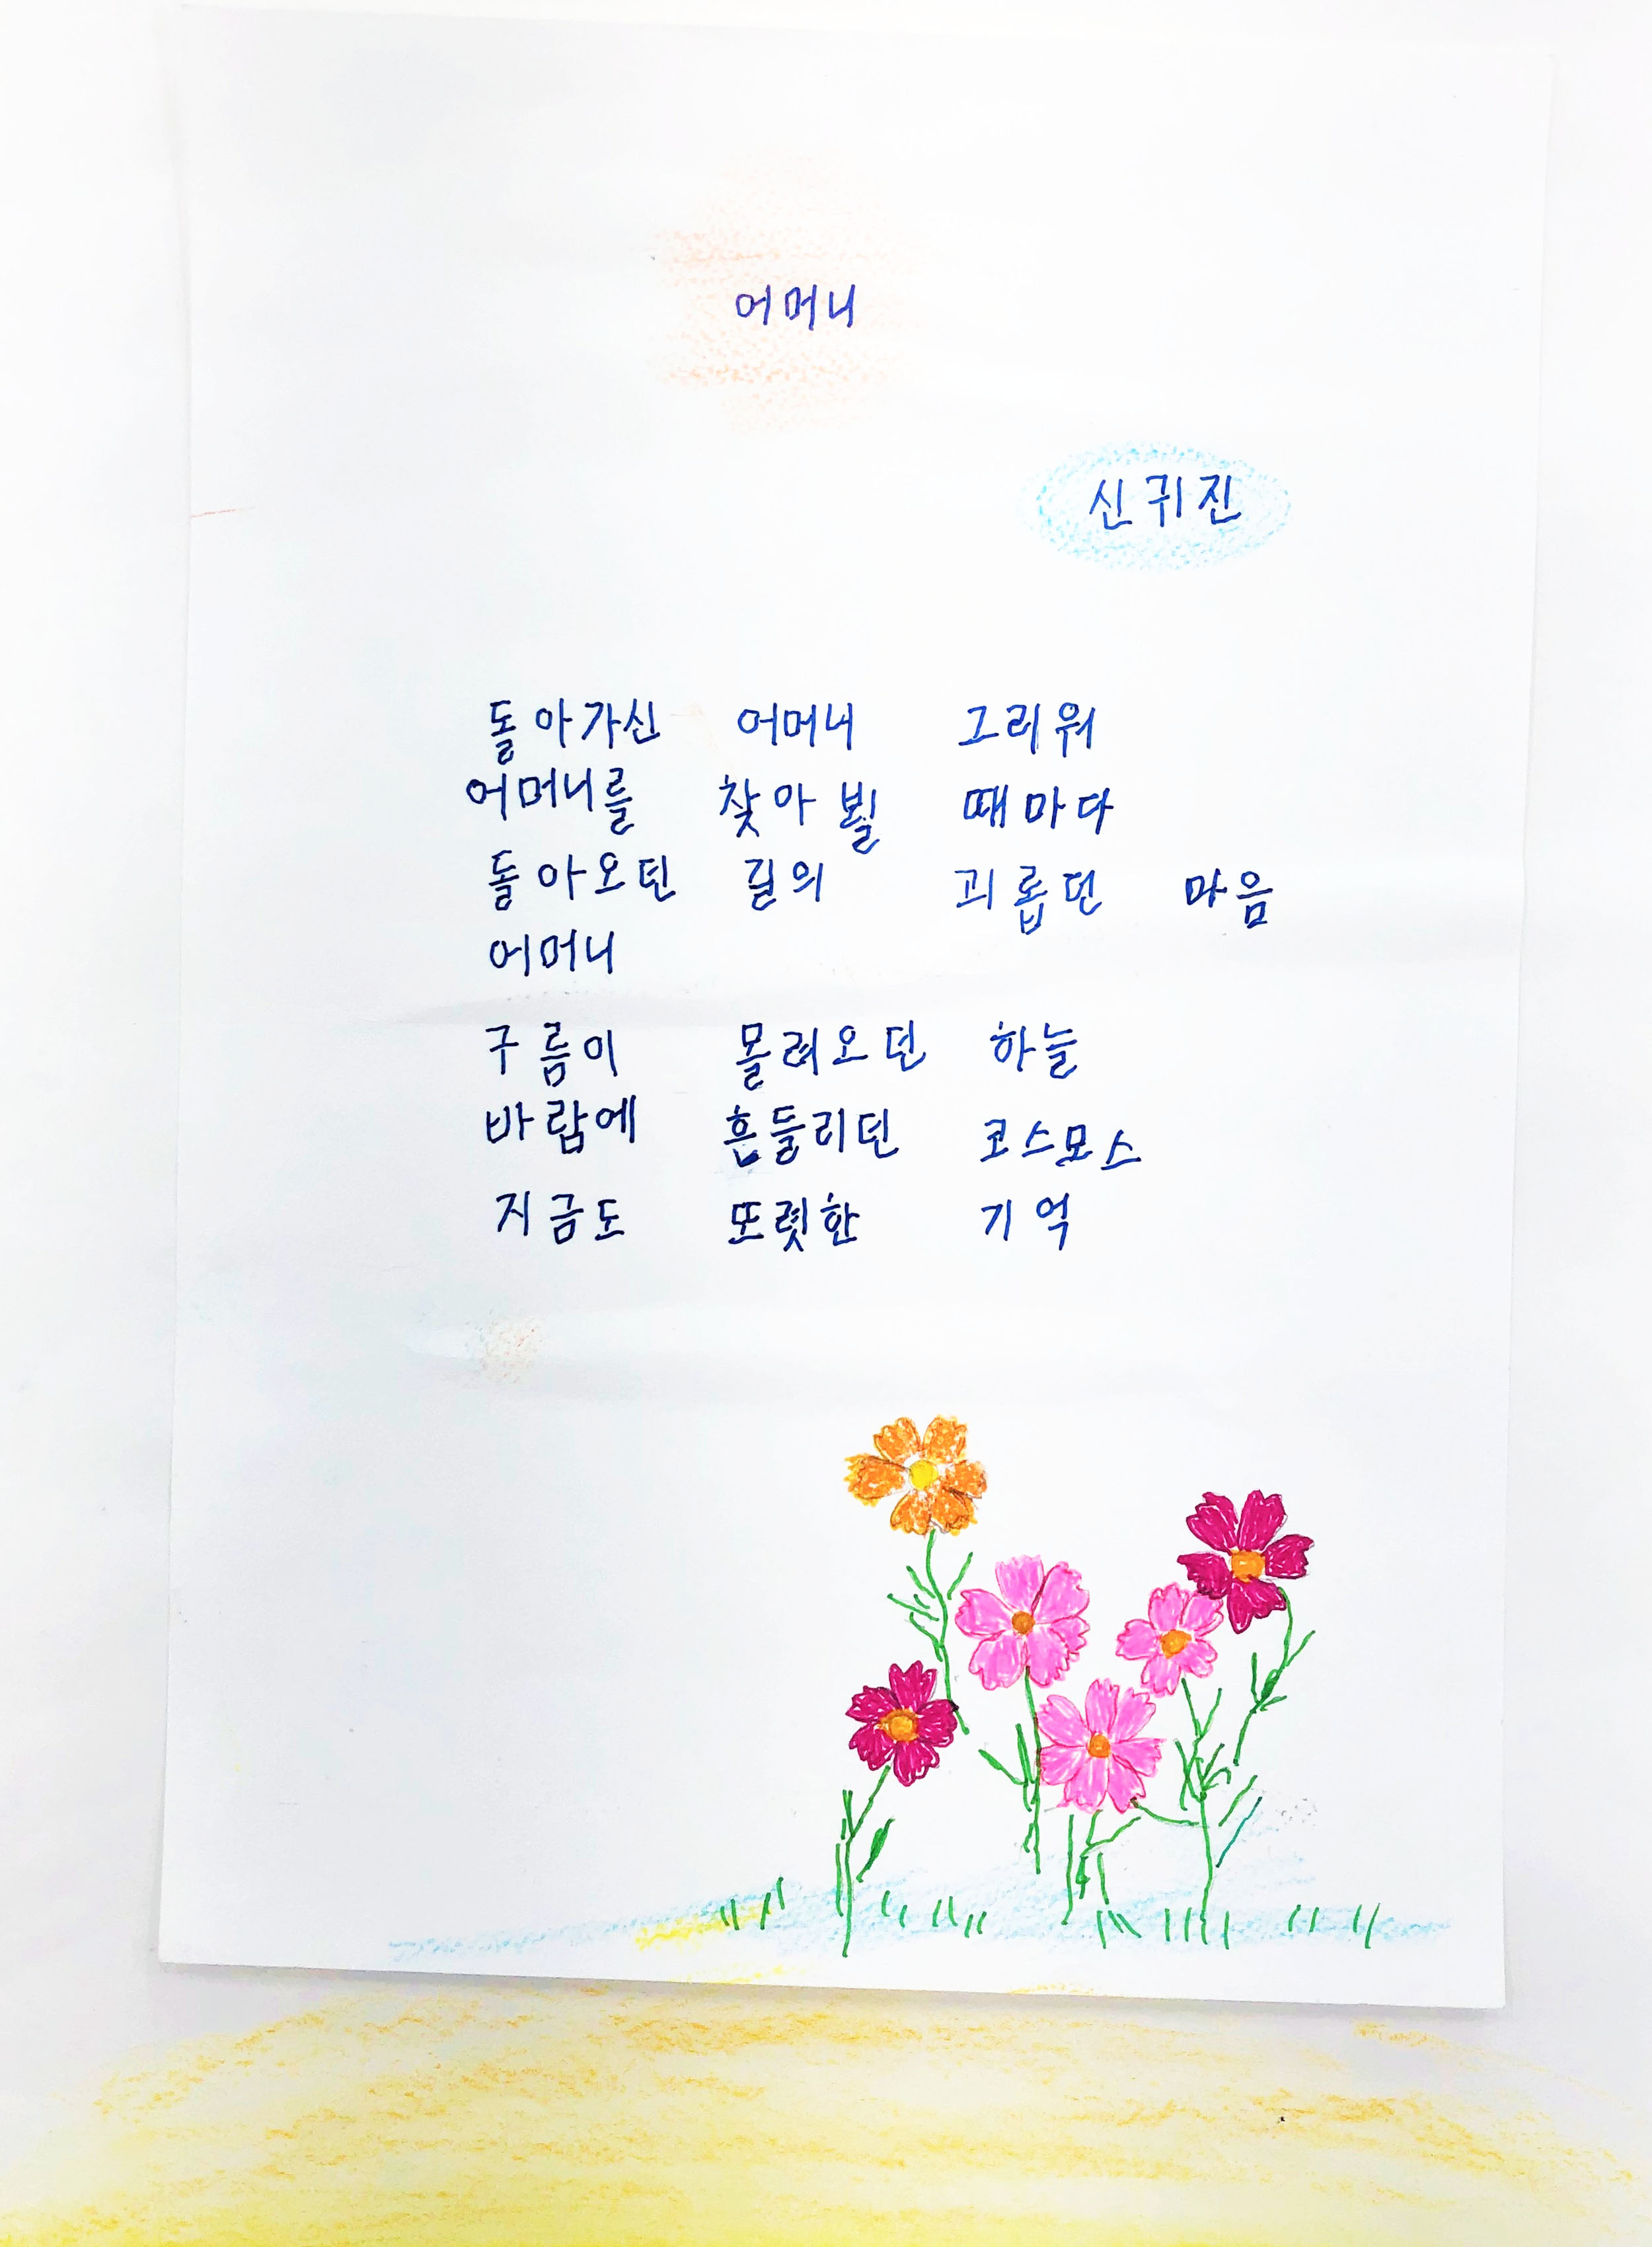 어머니
신귀진
돌아가신 어머니 그리워
어머니를 찾아뵐 때마다
돌아오던 길의 괴롭던 마음
어머니
구름이 몰려오던 하늘
바람에 흔들리던 코스모스
지금도 또렷한 기억